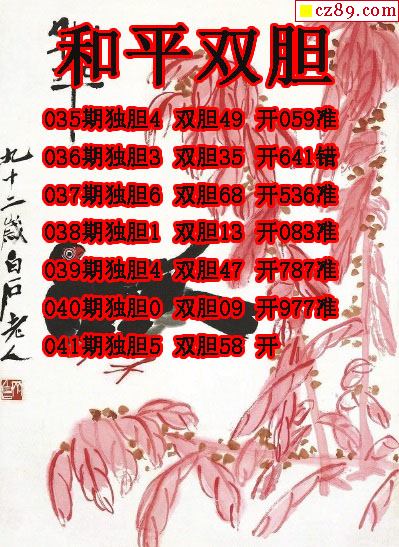 cz89.com
和平双胆
035期独胆4 双胆49 开059准
036期独胆3 双胆35 开641错
037期独胆6 双胆68 开536准
038期独胆1 双胆13 开083准
039期独胆4 双胆47 开787准
040期独胆0 双胆09 开977准
041期独胆5 双胆58 开
九十二岁白石老人